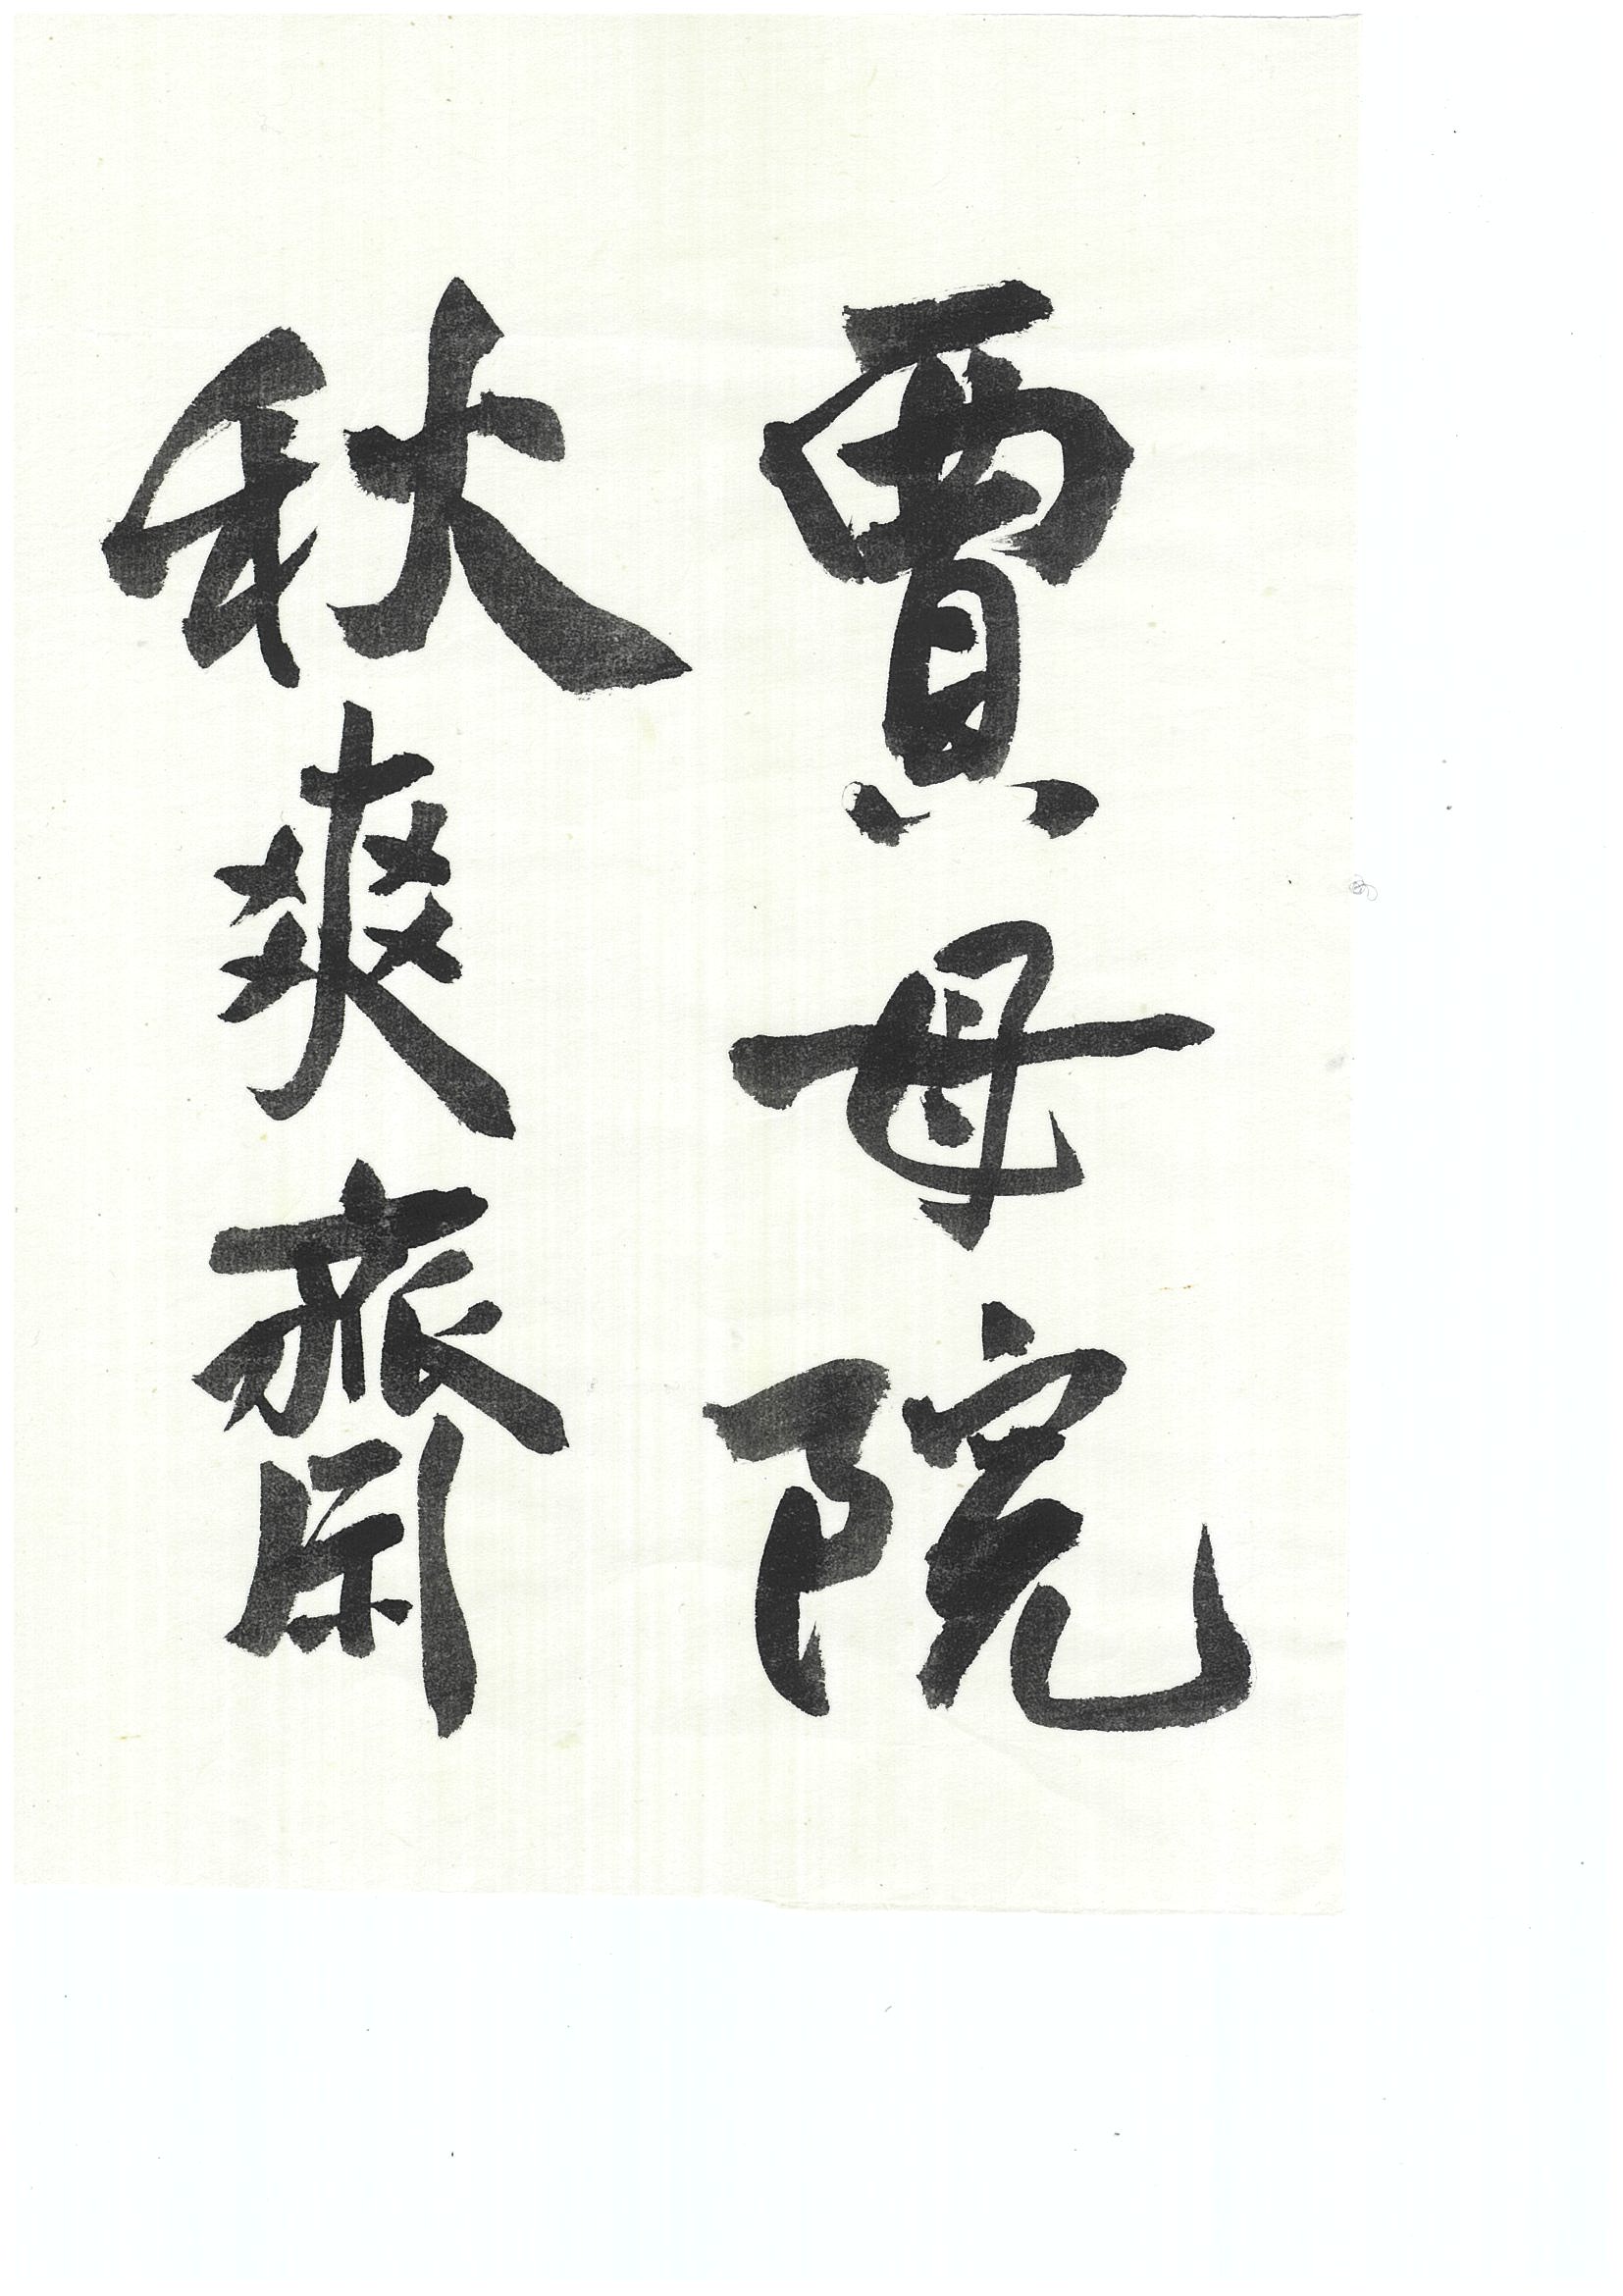 賈母院
秋爽齋